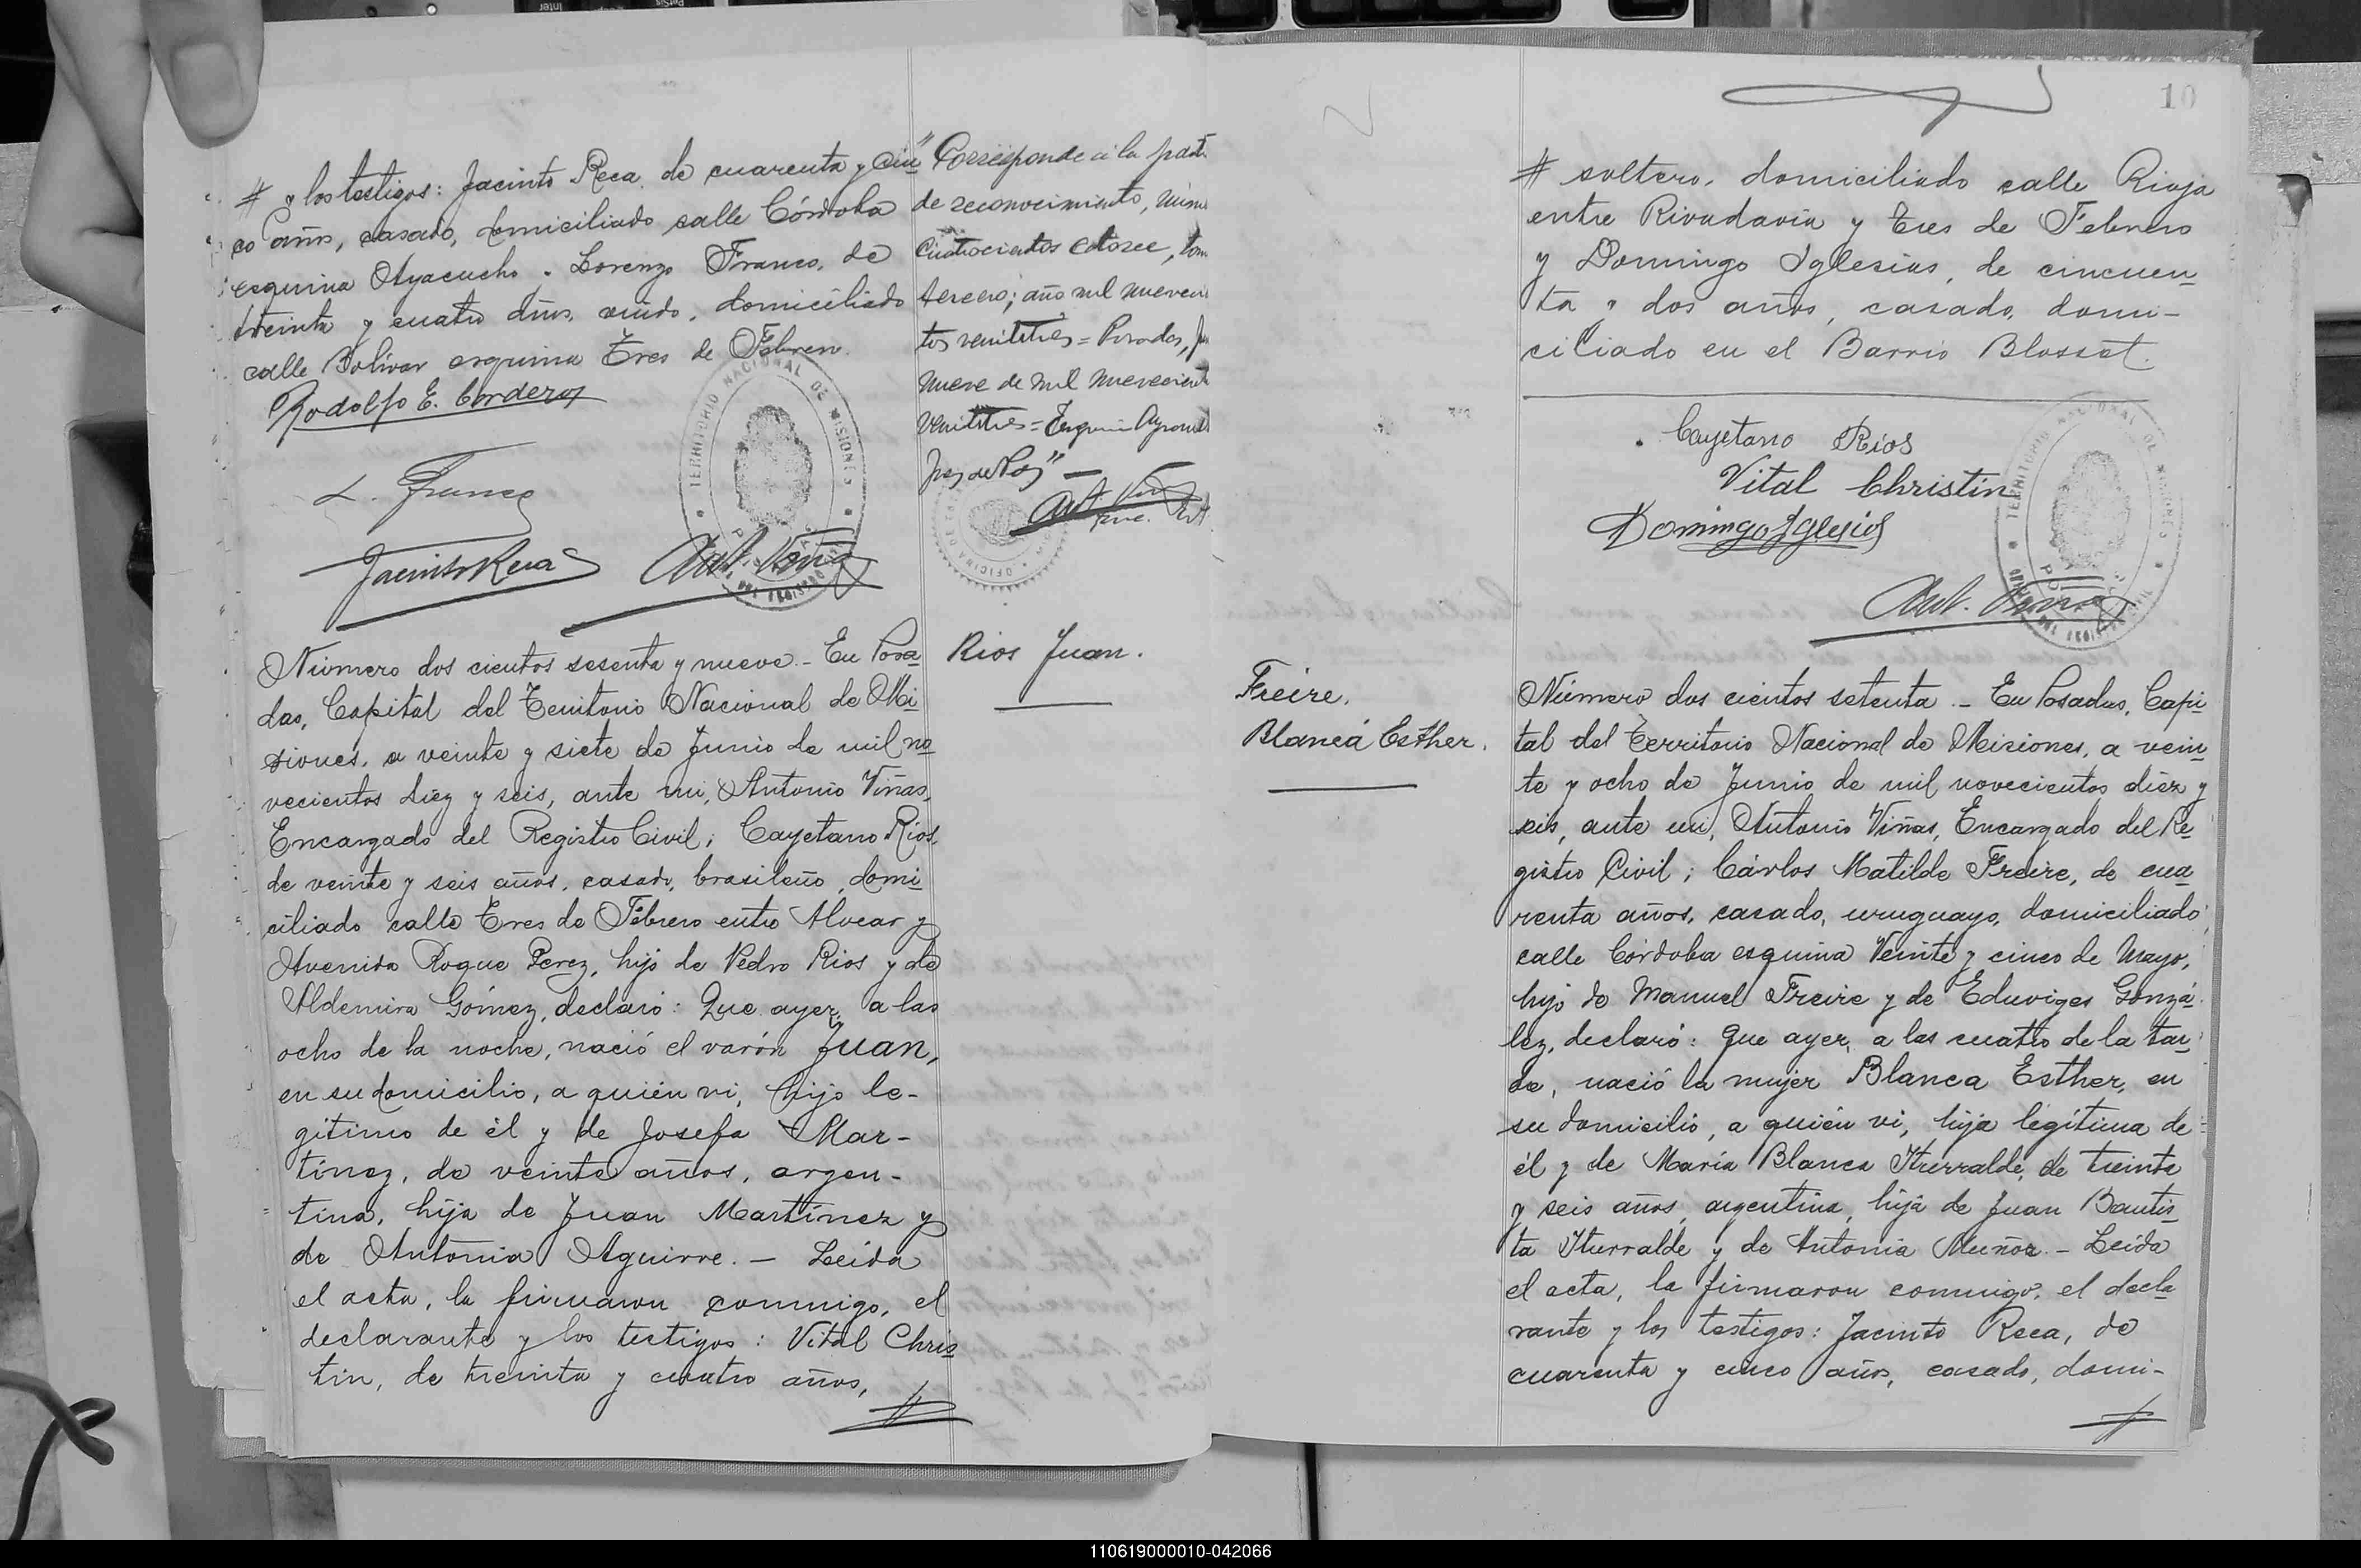 # y los testigos: Jacinto Reca, de cuarenta y cin
co años, casado, domiciliado calle Córdoba
esquina Ayacucho y Lorenzo Franco, de
treinta y cuatro años, viudo, domiciliado
calle Bolívar esquina Tres de Febrero.
Rodolfo E. Corderos
L. Franco
Jacinto Reca
Ant. Viñas
TERRITORIO NACIONAL DE MISIONES
"Corresponde a la part
de reconocimiento, núm
cuatrocientos catorce, tom
tercero; año mil novecien
tos veintitrés = Posadas, Ju
nueve de mil novecient
veintitrés =
Juez de Paz" —
Ant. Viñas
Número dos cientos sesenta y nueve. - En Posa
das, Capital del Territorio Nacional de Mi
siones, a veinte y siete de Junio de mil no
vecientos diez y seis, ante mi, Antonio Viñas,
Encargado del Registro Civil; Cayetano Rios,
de veinte y seis años, casado, brasileño, domi
ciliado calle Tres de Febrero entre Alvear y
Avenida Roque Perez, hijo de Pedro Rios y de
Aldemira Gómez, declaró: Que ayer, a las
ocho de la noche, nació el varón Juan,
en su domicilio, a quién vi, hijo le-
gítimo de él y de Josefa Mar-
tínez, de veinte años, argen-
tina, hija de Juan Martínez y
de Antonia Aguirre. - Leída
el acta, la firmaron conmigo, el
declarante y los testigos: Vital Chris
tin, de treinta y cuatro años,
#
Rios Juan.
10
# soltero, domiciliado calle Rioja
entre Rivadavia y Tres de Febrero
y Domingo Iglesias, de cincuen
ta y dos años, casado, domi-
ciliado en el Barrio Blosset.
Cayetano Rios
Vital Christin
Domingo Iglesias
Ant. Viñas
TERRITORIO NACIONAL DE MISIONES
Freire,
Blanca Esther.
Número dos cientos setenta. - En Posadas, Capi
tal del Territorio Nacional de Misiones, a vein
te y ocho de Junio de mil novecientos diez y
seis, ante mi, Antonio Viñas, Encargado del Re
gistro Civil; Cárlos Matilde Freire, de cua
renta años, casado, uruguayo, domiciliado
calle Córdoba esquina Veinte y cinco de Mayo,
hijo de Manuel Freire y de Eduviges Gonzá
lez, declaró: Que ayer, a las cuatro de la tar
de, nació la mujer Blanca Esther, en
su domicilio, a quién vi, hija legítima de
él y de María Blanca Iturralde, de treinta
y seis años, argentina, hija de Juan Bautis
ta Iturralde y de Antonia Muñoz. - Leída
el acta, la firmaron conmigo, el decla
rante y los testigos: Jacinto Reca, de
cuarenta y cinco años, casado, domi-
#
110619000010-042066